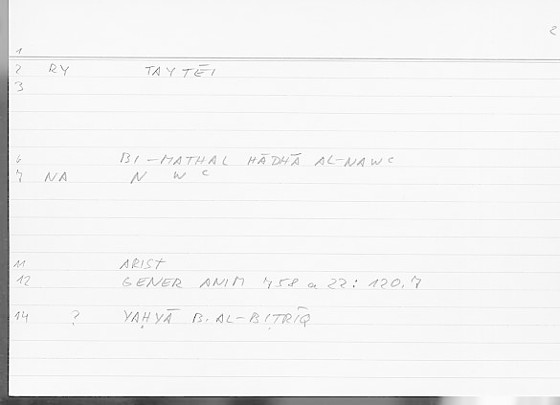 2
1
2 RY TAYTĒI
3
6 BI-MATHAL HĀDHĀ AL-NAWʿ
7 NA N W ʿ
11 ARIST
12 GENER ANIM 758 a 22 : 120.7
14 ? YAḤYĀ B. AL-BIṬRĪQ